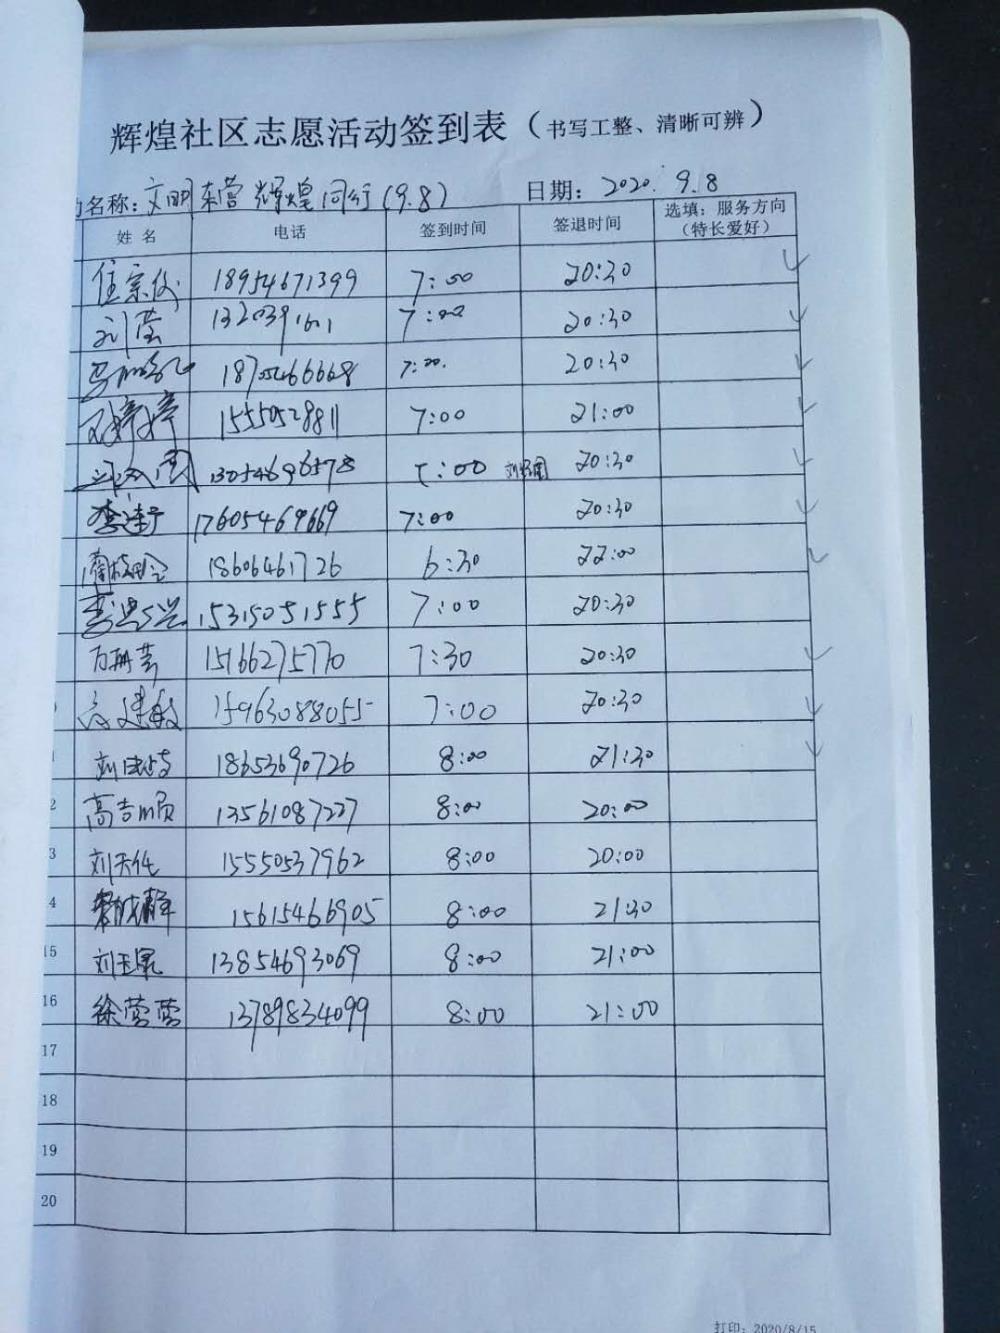 辉煌社区志愿活动签到表（书写工整、清晰可辨）
名称：文明东营 辉煌同行(9.8) 日期：2020.9.8
姓名 电话 签到时间 签退时间 选填：服务方向（特长爱好）
18954671399 7:00 20:30
刘莹 7:00 20:30
7:00. 20:30
婷婷 15550528811 7:00 21:00
13054696578 :00 20:30
李 17605469669 7:00 20:30
18606461726 6:30 22:00
李 15315051555 7:00 20:30
15166275770 7:30 20:30
15963088055 7:00 20:30
刘 18653690726 8:00 21:30
2 高吉顺 13561087227 8:00 20:00
3 刘天 15550537962 8:00 20:00
4 15615466905 8:00 21:30
15 刘玉 13854693069 8:00 21:00
16 徐莹莹 13789834099 8:00 21:00
17
18
19
20
打印：2020/8/15